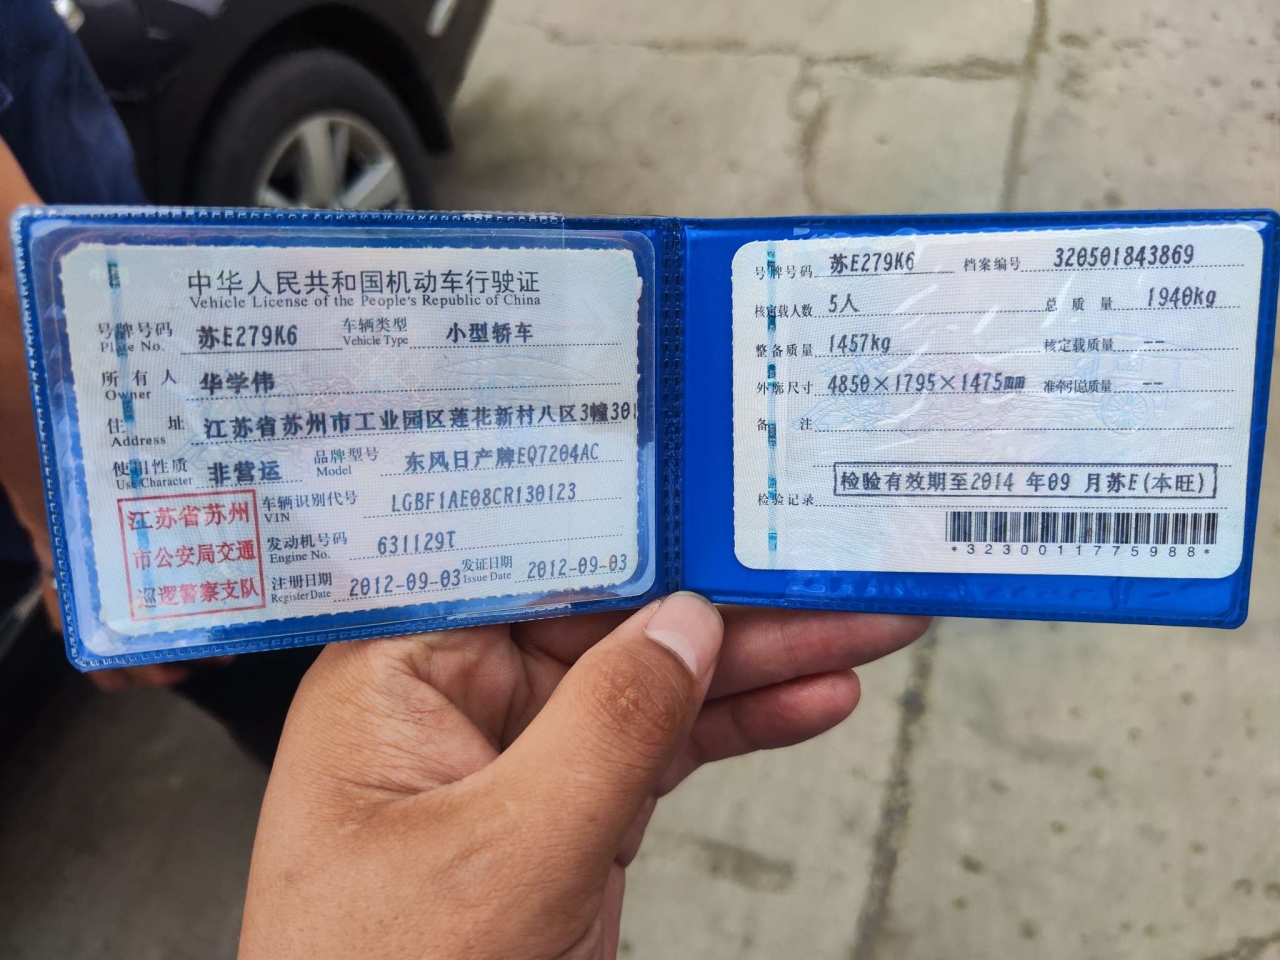 中华人民共和国机动车行驶证
Vehicle License of the People's Republic of China
号牌号码 苏E279K6 车辆类型 小型轿车
Plate No. Vehicle Type
所有人 华学伟
Owner
住址 江苏省苏州市工业园区莲花新村八区3幢301
Address
使用性质 非营运 品牌型号 东风日产牌EQ7204AC
Use Character Model
江苏省苏州
市公安局交通
巡逻警察支队
车辆识别代号 LGBF1AE08CR130123
VIN
发动机号码 631129T
Engine No.
注册日期 2012-09-03 发证日期 2012-09-03
Register Date Issue Date
号牌号码 苏E279K6 档案编号 320501843869
核定载人数 5人 总质量 1940kg
整备质量 1457kg 核定载质量 --
外廓尺寸 4850×1795×1475mm 准牵引总质量 --
备注
检验记录 检验有效期至2014 年09 月苏E(本旺)
*3230011775988*